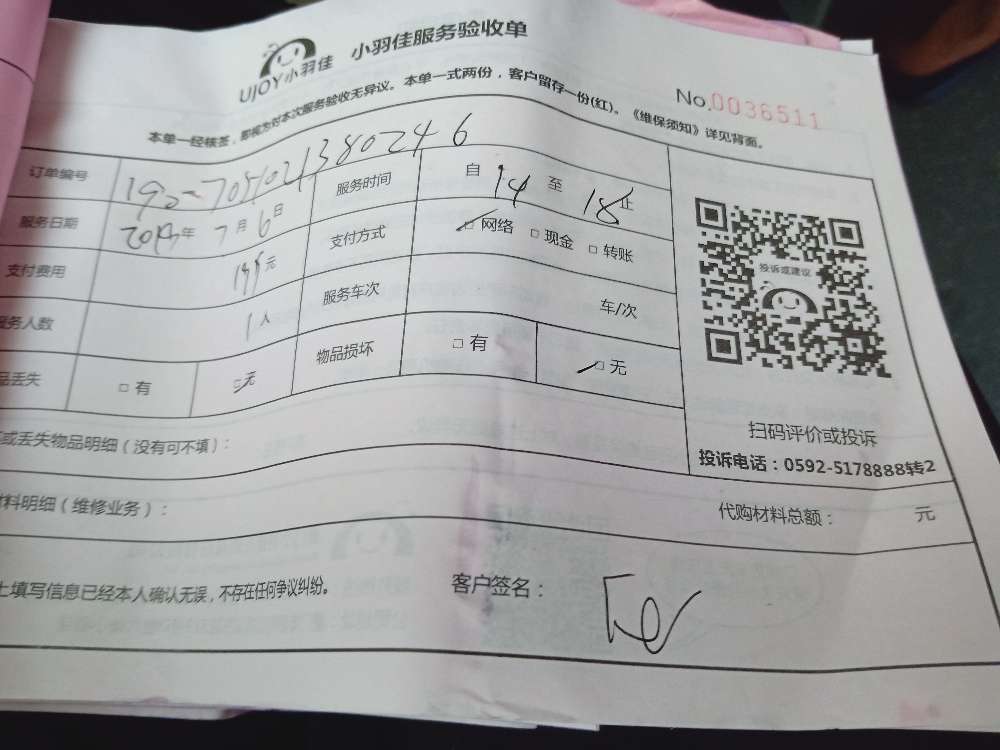 UJOY小羽佳 小羽佳服务验收单
No.0036511
本单一经核签，即视为对本次服务验收无异议。本单一式两份，客户留存一份(红)。《维保须知》详见背面。
订单编号 服务时间 自 14 至 18 止
服务日期 年 7 月 6 日 支付方式 □ 网络 □ 现金 □ 转账
支付费用 元 服务车次 车/次
服务人数 1 人 物品损坏 □ 有 □ 无
品丢失 □ 有 □ 无
投诉或建议
扫码评价或投诉
投诉电话：0592-5178888转2
或丢失物品明细（没有可不填）：
材料明细（维修业务）： 代购材料总额： 元
上填写信息已经本人确认无误，不存在任何争议纠纷。 客户签名：